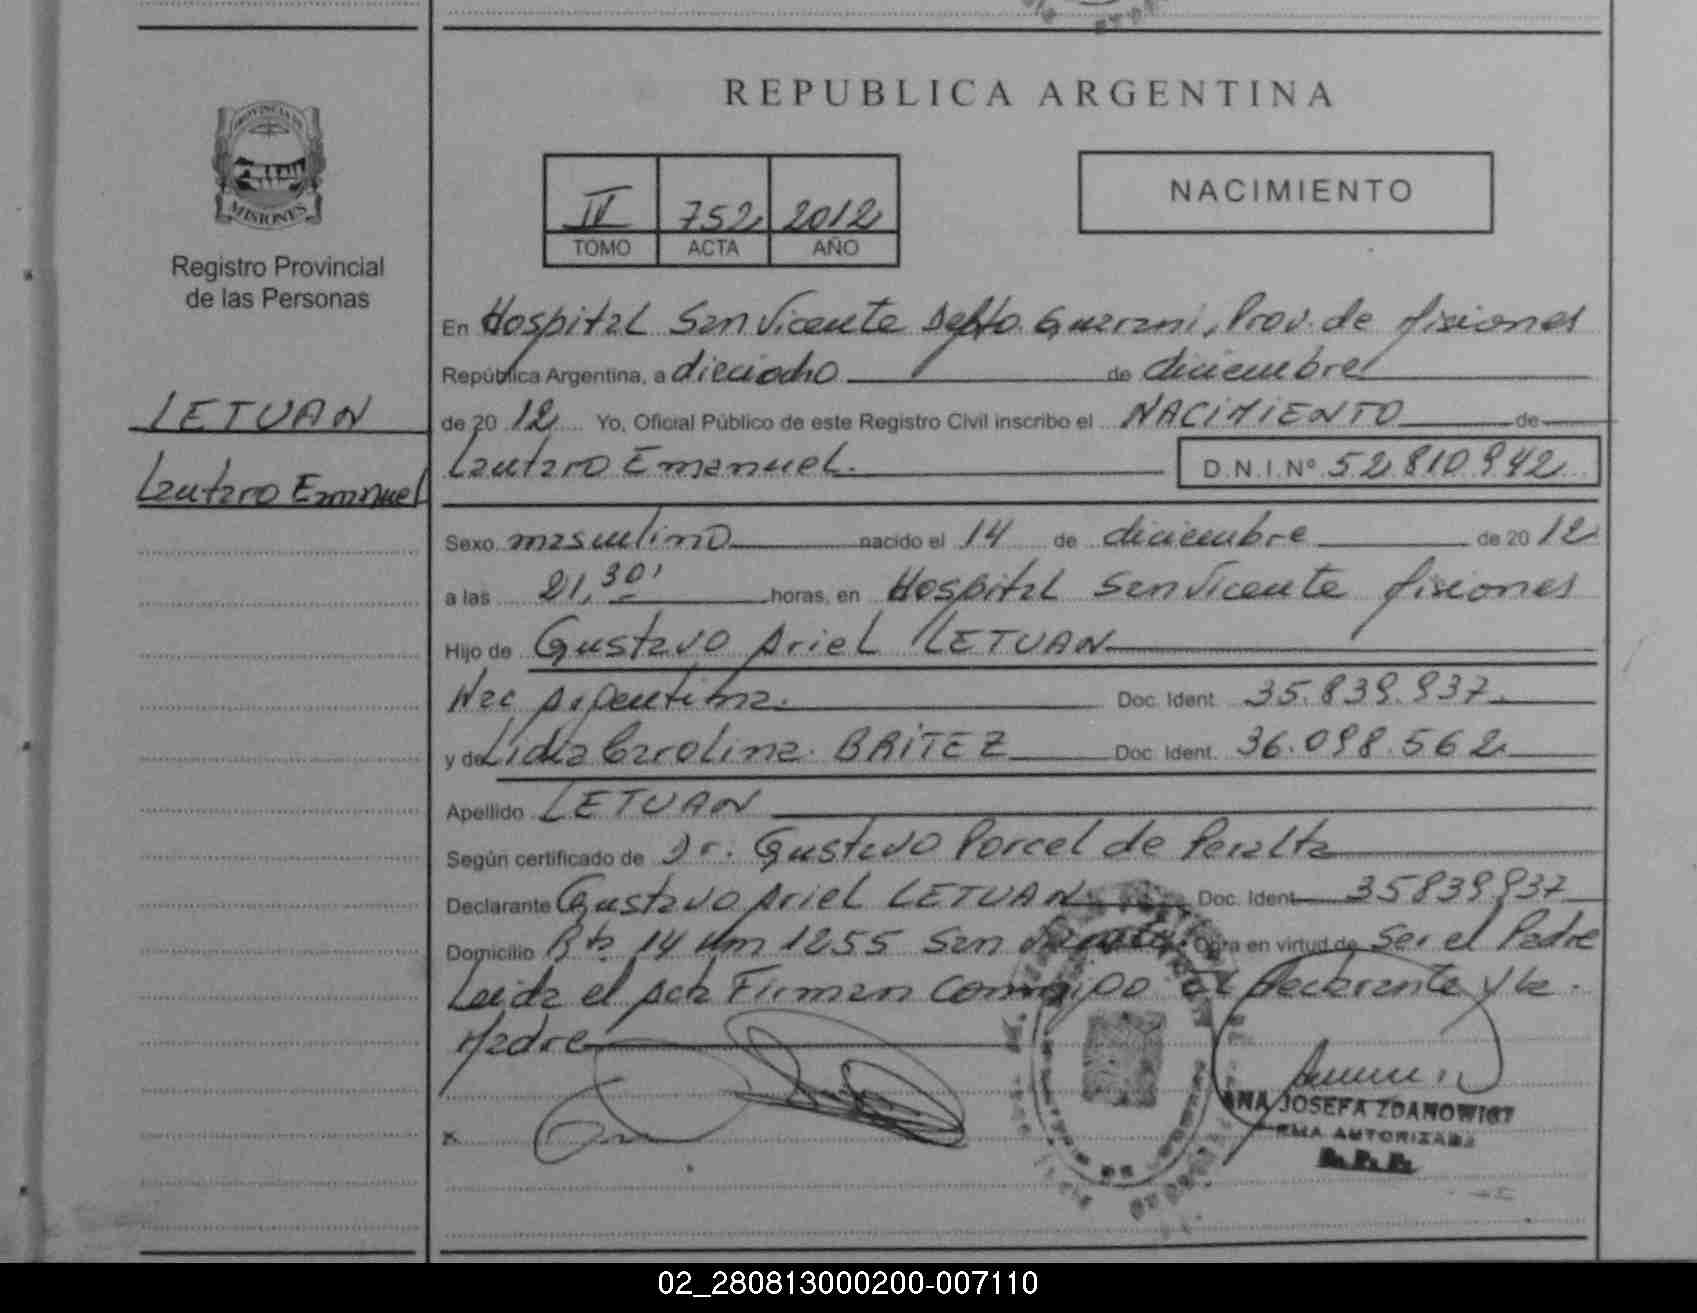 REPUBLICA ARGENTINA
PROVINCIA DE
MISIONES
Registro Provincial
de las Personas
LETUAN
Lautaro Emanuel
II 752 2012
TOMO ACTA AÑO
NACIMIENTO
En Hospital San Vicente Depto Guarani, Prov. de Misiones
República Argentina, a dieciocho de diciembre
de 2012 Yo, Oficial Público de este Registro Civil inscribo el NACIMIENTO de
Lautaro Emanuel. D.N.I.Nº 52.810.942
Sexo masculino nacido el 14 de diciembre de 2012
a las 21,30' horas, en Hospital San Vicente Misiones
Hijo de Gustavo Ariel LETUAN
Nac Argentina. Doc. Ident. 35.839.937
y de Lidia Carolina BRITEZ Doc. Ident. 36.098.562
Apellido LETUAN
Según certificado de Dr. Gustavo Porcel de Peralta
Declarante Gustavo Ariel LETUAN Doc. Ident. 35839937
Domicilio Rta 14 Km 1255 San Vicente. Obra en virtud de Ser el Padre
Leida el Acta Firman Conmigo el Declarante y la
Madre
x
ANA JOSEFA ZDANOWICZ
FIRMA AUTORIZADA
02_280813000200-007110